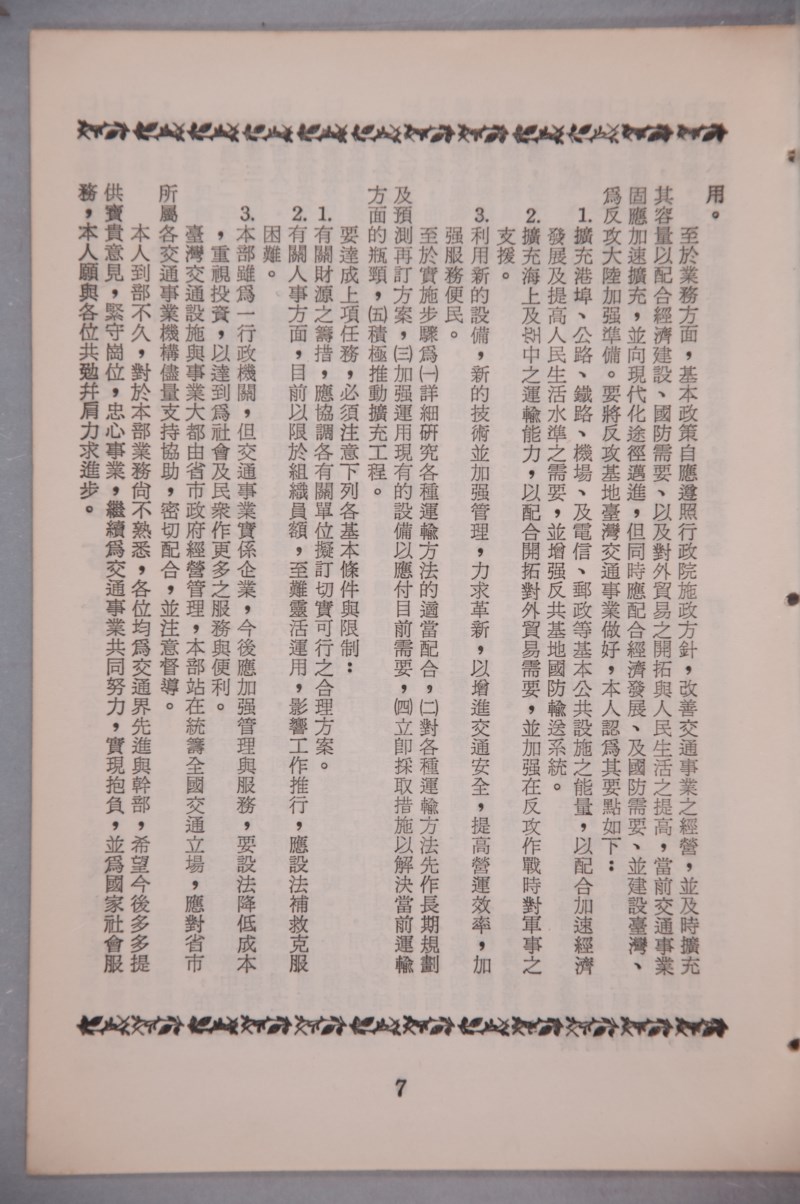 用。
至於業務方面，基本政策自應遵照行政院施政方針，改善交通事業之經營，並及時擴充
其容量以配合經濟建設、國防需要、以及對外貿易之開拓與人民生活之提高，當前交通事業
固應加速擴充，並向現代化途徑邁進，但同時應配合經濟發展、及國防需要、並建設臺灣、
爲反攻大陸加强準備。要將反攻基地臺灣交通事業做好，本人認爲其要點如下：
1.擴充港埠、公路、鐵路、機場、及電信、郵政等基本公共設施之能量，以配合加速經濟
發展及提高人民生活水準之需要，並增强反共基地國防輸送系統。
2.擴充海上及空中之運輸能力，以配合開拓對外貿易需要，並加强在反攻作戰時對軍事之
支援。
3.利用新的設備，新的技術並加强管理，力求革新，以增進交通安全，提高營運效率，加
强服務便民。
至於實施步驟爲㈠詳細硏究各種運輸方法的適當配合，㈡對各種運輸方法先作長期規劃
及預測再訂方案，㈢加强運用現有的設備以應付目前需要，㈣立卽採取措施以解決當前運輸
方面的瓶頸，㈤積極推動擴充工程。
要達成上項任務，必須注意下列各基本條件與限制：
1.有關財源之籌措，應協調各有關單位擬訂切實可行之合理方案。
2.有關人事方面，目前以限於組織員額，至難靈活運用，影響工作推行，應設法補救克服
困難。
3.本部雖爲一行政機關，但交通事業實係企業，今後應加强管理與服務，要設法降低成本
，重視投資，以達到爲社會及民衆作更多之服務與便利。
臺灣交通設施與事業大都由省市政府經營管理，本部站在統籌全國交通立場，應對省市
所屬各交通事業機構儘量支持協助，密切配合，並注意督導。
本人到部不久，對於本部業務尙不熟悉，各位均爲交通界先進與幹部，希望今後多多提
供寶貴意見，緊守崗位，忠心事業，繼續爲交通事業共同努力，實現抱負，並爲國家社會服
務，本人願與各位共勉幷肩力求進步。
7